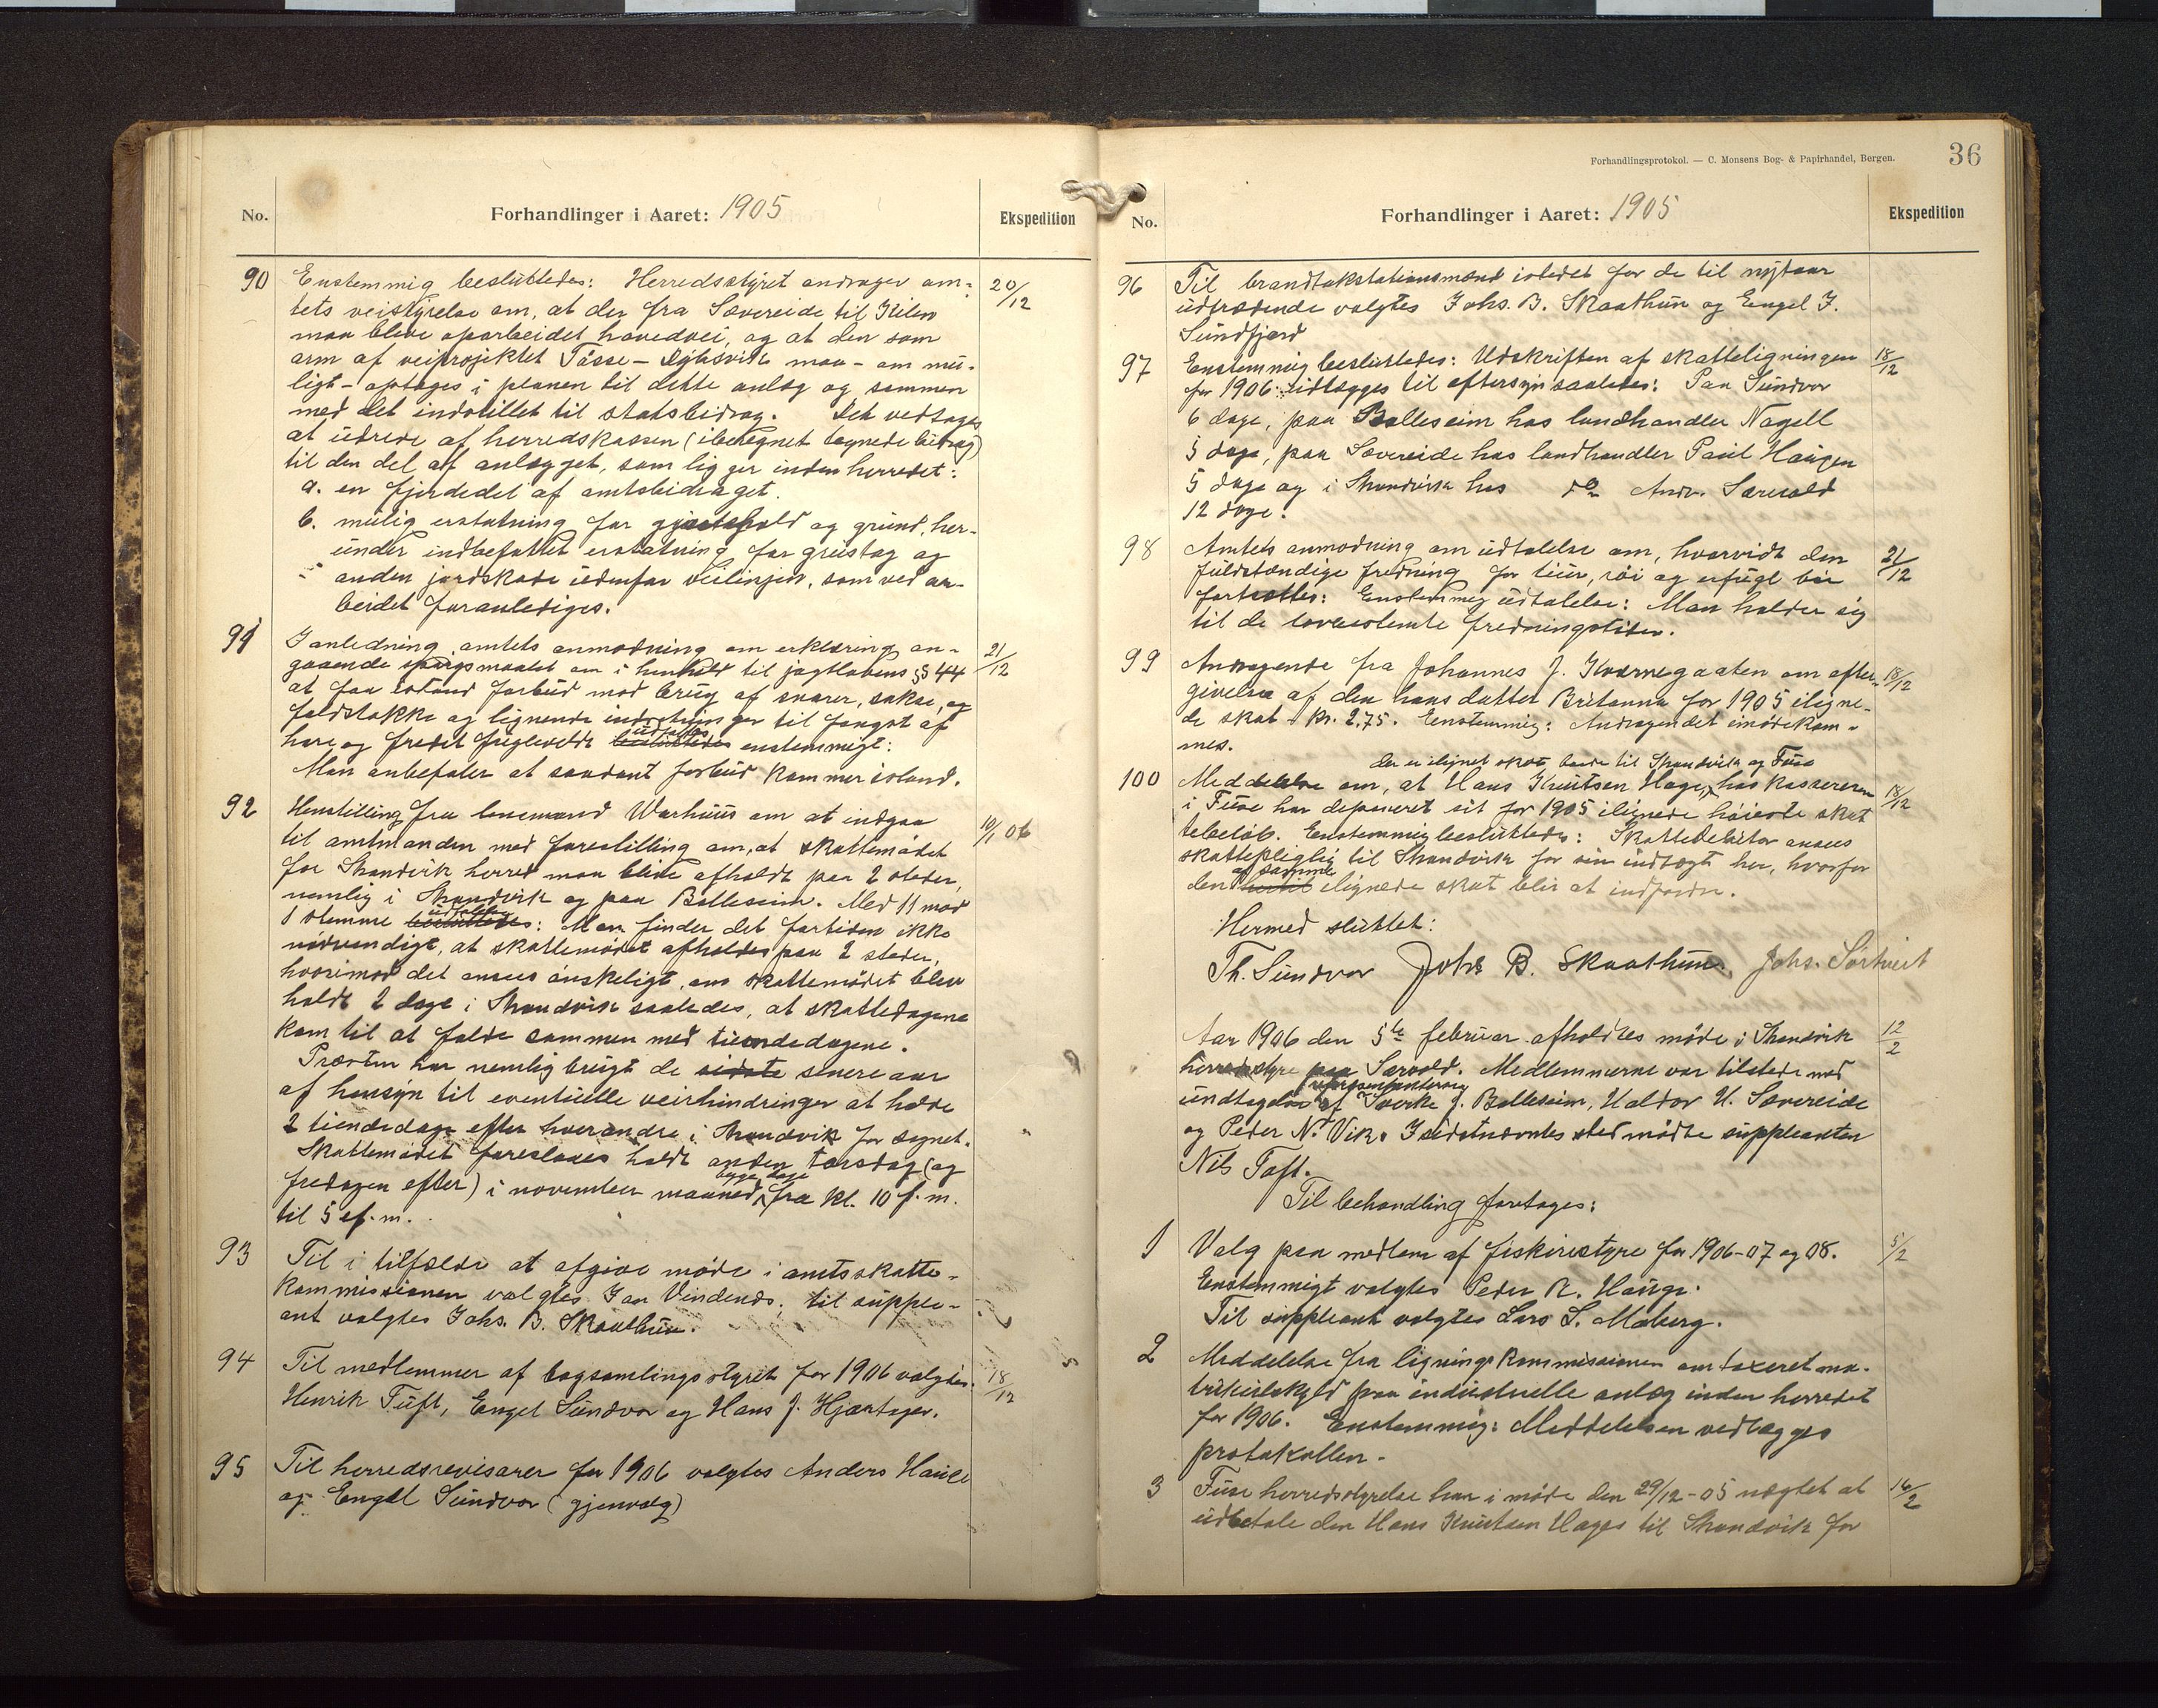 No.
Forhandlinger i Aaret: 1905
Ekspedition
90 Enstemmig besluttedes: Herredsstyret andrager am- 20/12
tets veistyrelse om, at der fra Sævereide til Kilen
maa blive oparbeidet hovedvei, og at den som
arm af veiprojektet Tösse - maa - om mu-
ligt - optages i planen til dette anlæg og sammen
med det indstillet til statsbidrag. Det vedtages
at udrede af herredskassen (iberegnet bidrag)
til den del af anlægget, som ligger inden herredet:
a. en fjerdedel af amtsbidraget.
b. mulig erstatning for gjærdehold og grund, her-
under indbefattet erstatning for grustag og
anden jordskade udenfor veilinjen, som ved ar-
beidet foranlediges.
91 I anledning amtets anmodning om erklæring an- 21/12
gaaende spørgsmaalet om i henhold til jagtlovens § 44
at faa istand forbud mod brug af snarer, sakse, og
faldstokke og lignende indretninger til fangst af
udtaltes
hare og fredet fuglevildt besluttedes enstemmigt:
Man anbefaler at saadant forbud kommer istand.
92 Henstilling fra lensmand Warhuus om at indgaa 10/1 06
til amtmanden med forestilling om, at skattemødet
for Strandvik herred maa blive afholdt paa 2 steder,
nemlig i Strandvik og paa Bolleseim. Med 11 mod
udtaltes
1 stemme besluttedes: Man finder det fortiden ikke
nödvendigt, at skattemödet afholdes paa 2 steder,
hvorimod det ansees önskeligt, om skattemödet blev
holdt 2 dage i Strandvik saaledes, at skattedagene
kom til at falde sammen med tiendedagene.
Præsten har nemlig brugt de sidste senere aar
af hensyn til eventuelle veirhindringer at holde
2 tiendedage efter hverandre i Strandvik for sognet.
Skattemödet foreslaaes holdt anden torsdag (og
begge dage
fredagen efter) i november maaned, fra kl. 10 f.m.
til 5 ef.m.
93 Til i tilfælde at afgive möde i amtsskatte-
kommissionen valgtes Jan Vindenes; til supple-
ant valgtes Johs. B. Skaathun.
94 Til medlemmer af bogsamlingsstyret for 1906 valgtes 18/12
Henrik Tuft, Engel Sundvor og Hans J. Hjartager.
95 Til herredsrevisorer for 1906 valgtes Anders Hauge
og Engel Sundvor (gjenvalg)
Forhandlingsprotokol. — C. Monsens Bog- & Papirhandel, Bergen.
36
No.
Forhandlinger i Aaret: 1905
Ekspedition
96 Til brandtakstationsmænd istedet for de til nytaar
udtrædende valgtes Johs. B. Skaathun og Engel J.
Sundfjord
97 Enstemmig besluttedes: Udskriften af skatteligningen 18/12
for 1906 udlægges til eftersyn saaledes: Paa Sundvor
6 dage, paa Bolleseim hos landhandler Nagell
5 dage, paa Sævereide hos landhandler Paul Haugen
5 dage og i Strandvik hos do Andr. Særvold
12 dage.
98 Amtets anmodning om udtalelse om, hvorvidt den 21/12
fuldstændige fredning for tiur, röi og erfugl bör
fortsættes: Enstemmig udtalelse: Man holder sig
til de lovbestemte fredningstider.
99 Andragende fra Johannes J. Kvernegaaten om efter- 18/12
givelse af den hans datter Britanna for 1905 iligne-
de skat - kr. 2,75. Enstemmig: Andragendet imödekom-
mes.
der er ilignet skat baade til Strandvik og Fuse
100 Meddelelse om, at Hans Knutsen Hage, hos kassereren 18/12
i Fuse har deponeret sit for 1905 ilignede höieste skat
tebelöb. Enstemmig besluttedes: Skattedebitor ansees
skattepligtig til Strandvik for sin indtægt her, hvorfor
af samme
den hertil ilignede skat blir at indfordre.
Hermed sluttet:
Th. Sundvor Johs B. Skaathun, Johs. Sörtveit
Aar 1906 den 5te februar afholdtes möde i Strandvik 12/2
herredsstyre paa Særvold. Medlemmerne var tilstede med
repræsentanterne
undtagelse af Sverke J. Bolleseim, Haldor H. Sævereide
og Peder N. Vik. I sidstnævntes sted mödte suppleanten
Nils Toft.
Til behandling foretages:
1 Valg paa medlem af fiskiristyre for 1906-07 og 08. 5/2
Enstemmigt valgtes Peder R. Hauge.
Til suppleant valgtes Lars L. Moberg.
2 Meddelelse fra ligningskommissionen om taxeret ma-
trikulskyld paa industrielle anlæg inden herredet
for 1906. Enstemmig: Meddelelsen vedlægges
protokollen.
3 Fuse herredsstyrelse har i möde den 29/12-05 nægtet at 16/2
udbetale den Hans Knutsen Hages til Strandvik for